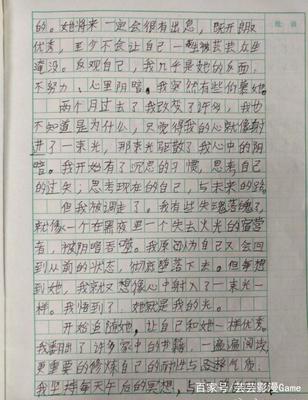 的。她将来一定会很有出息，既开朗
优秀，至少不会让自己一生被芸芸众生
淹没。反观自己，我几乎是她的反面，
不努力、心里阴暗。我突然有些仰慕她。
两个月过去了我改变了许多，我也
不知道是为什么，只觉得我的心就像射
进了一束光，那束光驱散了我心中的阴
暗。我开始有了沉思的习惯，思考自己
的过失；思考现在的自己，与未来的路。
但我被调走了。我有些失魂落魄了，
就像一个在黑夜里一个失去火光的
者，被阴暗吞噬。我原以为自己又会回
到从前的状态，彻底堕落下去。但每想
到她，我就又想像心中射入了一束光一
样。我悟到了，她就是我的光。
开始追随她，让自己和她一样优秀。
我翻出了许多家中的书籍，一遍遍阅读，
更重要的修炼自己的耐性与气质，
我坚持每天午后的冥想，与
百家号/芸芸影漫Game